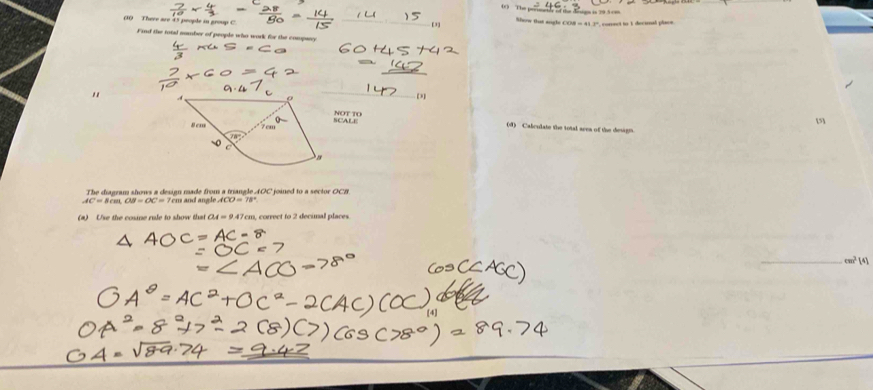 7/10 × 4/3 = 28/30 = 14/15 14 15
(ii) There are 45 people in group C. [1]
Find the total number of people who work for the company.
4/3 × 45 = 60 60+45+42
7/10 × 60 = 42 = 147
147 [3]
11
9.47 c
A
O
NOT TO
SCALE
8 cm
7 cm
a
78°
b
C
B
The diagram shows a design made from a triangle AOC joined to a sector OCB.
AC = 8 cm, OB = OC = 7 cm and angle ACO = 78°.
(a) Use the cosine rule to show that OA = 9.47 cm, correct to 2 decimal places.
Δ AOC = AC = 8
= OC = 7
= ∠ACO = 78°
cos(∠AOC)
OA² = AC² + OC² - 2(AC)(OC)
[4]
OA² = 8² + 7² - 2(8)(7)(cos(78°) = 89.74
OA = √89.74 = 9.47
(c) The perimeter of the design is
Show that angle COB = 41.2°, correct to 1 decimal place.
[5]
(d) Calculate the total area of the design.
cm² [4]